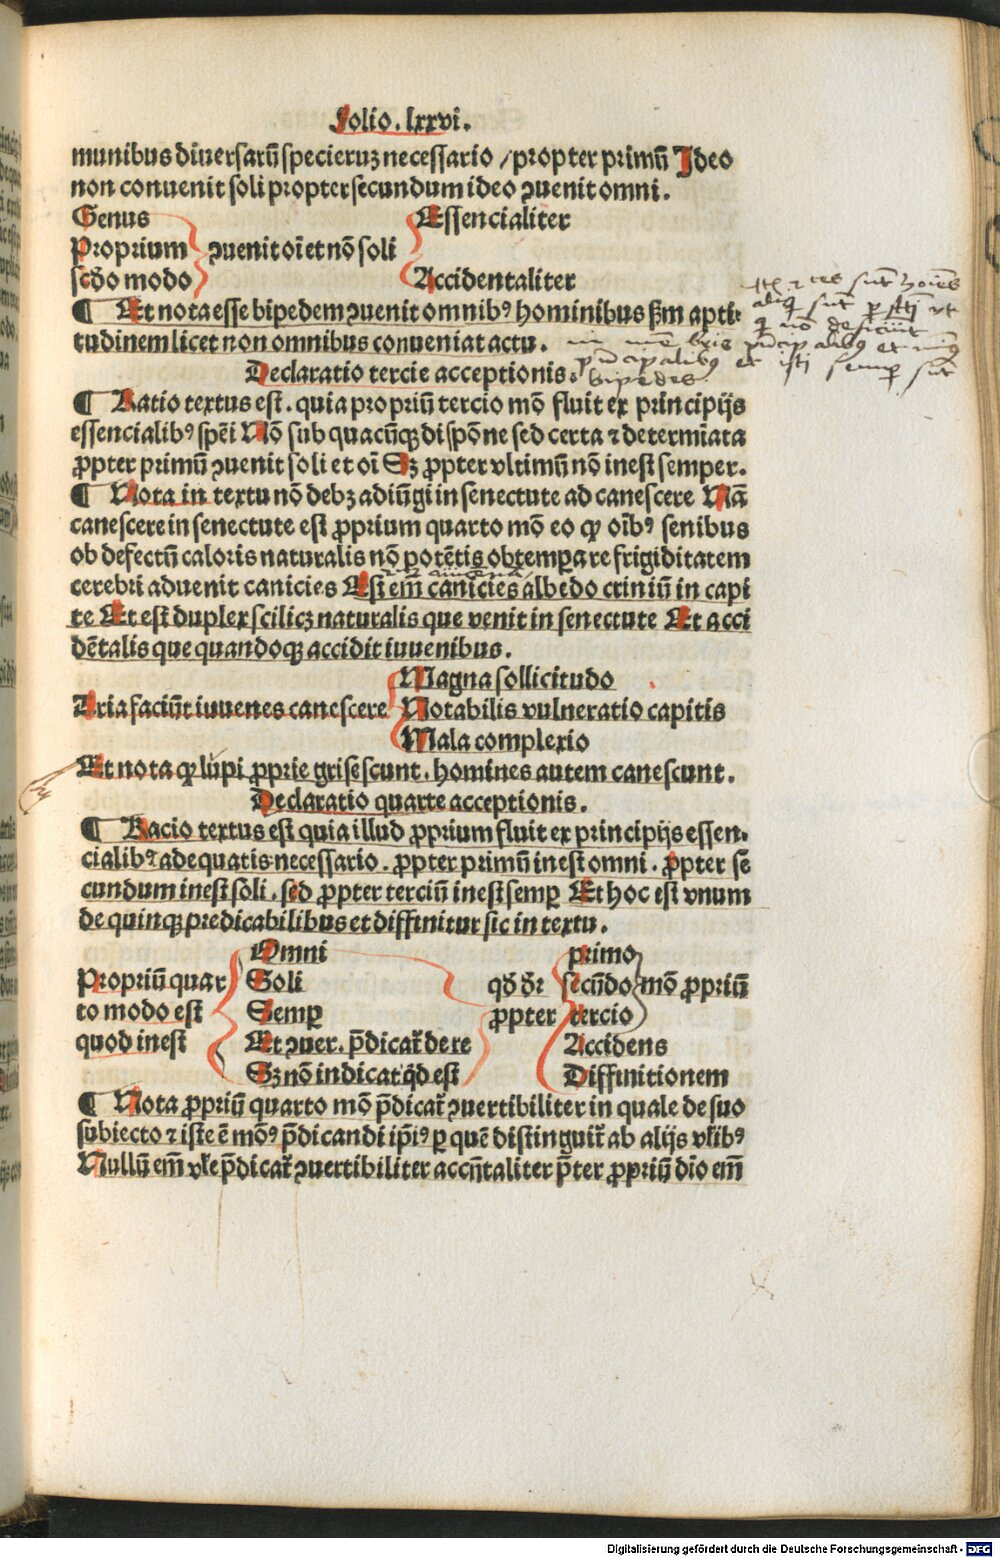 Folio. lxxvi.
munibus diuersarū specieruꝫ necessario / propter primū Ideo
non conuenit soli propter secundum ideo ꝯuenit omni.
Genus Essencialiter
Proprium ꝯuenit oī et nō soli
scd̄o modo Accidentaliter
¶ Et nota esse bipedem ꝯuenit omnibꝰ hominibus ẜm apti⸗
tudinem licet non omnibus conueniat actu.
Declaratio tercie acceptionis.
bipedes
¶ Ratio textus est. quia propriū tercio mō fluit ex principijs
essencialibꝰ spēi Nō sub quacūqꝫ dispōne sed certa ⁊ determīata
ꝓpter primū ꝯuenit soli et oī Sꝫ ꝓpter vltimū nō inest semper.
¶ Nota in textu nō debꝫ adiūgi in senectute ad canescere Nā
canescere in senectute est ꝓprium quarto mō eo ꝙ oībꝰ senibus
ob defectū caloris naturalis nō potētis obtemperare frigiditatem
cerebri aduenit canicies Est em̄ canicies albedo criniū in capi
te Et est duplex scilicꝫ naturalis que venit in senectute Et acci
dētalis que quandoqꝫ accidit iuuenibus.
Magna sollicitudo
Tria faciūt iuuenes canescere Notabilis vulneratio capitis
Mala complexio
Et nota ꝙ lupi ꝓprie grisescunt. homines autem canescunt.
Declaratio quarte acceptionis.
¶ Racio textus est quia illud ꝓprium fluit ex principijs essen⸗
cialibꝰ adequatis necessario. ꝓpter primū inest omni. ꝓpter se
cundum inest soli. sed ꝓpter terciū inest semꝑ Et hoc est vnum
de quinqꝫ predicabilibus et diffinitur sic in textu.
Omni primo
Propriū quar Soli qd̄ dr̄ secūdo mō ꝓpriū
to modo est Semꝑ ꝓpter tercio
quod inest Et ꝯuer. p̄dicat̄ de re Accidens
Sꝫ nō indicat qd̄ est Diffinitionem
¶ Nota ꝓpriū quarto mō p̄dicat̄ ꝯuertibiliter in quale de suo
subiecto ⁊ iste ē modꝰ p̄dicandi ip̄iꝰ ꝑ quē distinguit̄ ab alijs vl̄ibꝰ
Nullū em̄ vl̄e p̄dicat̄ ꝯuertibiliter accn̄taliter p̄ter ꝓpriū dīo em̄
Digitalisierung gefördert durch die Deutsche Forschungsgemeinschaft - DFG